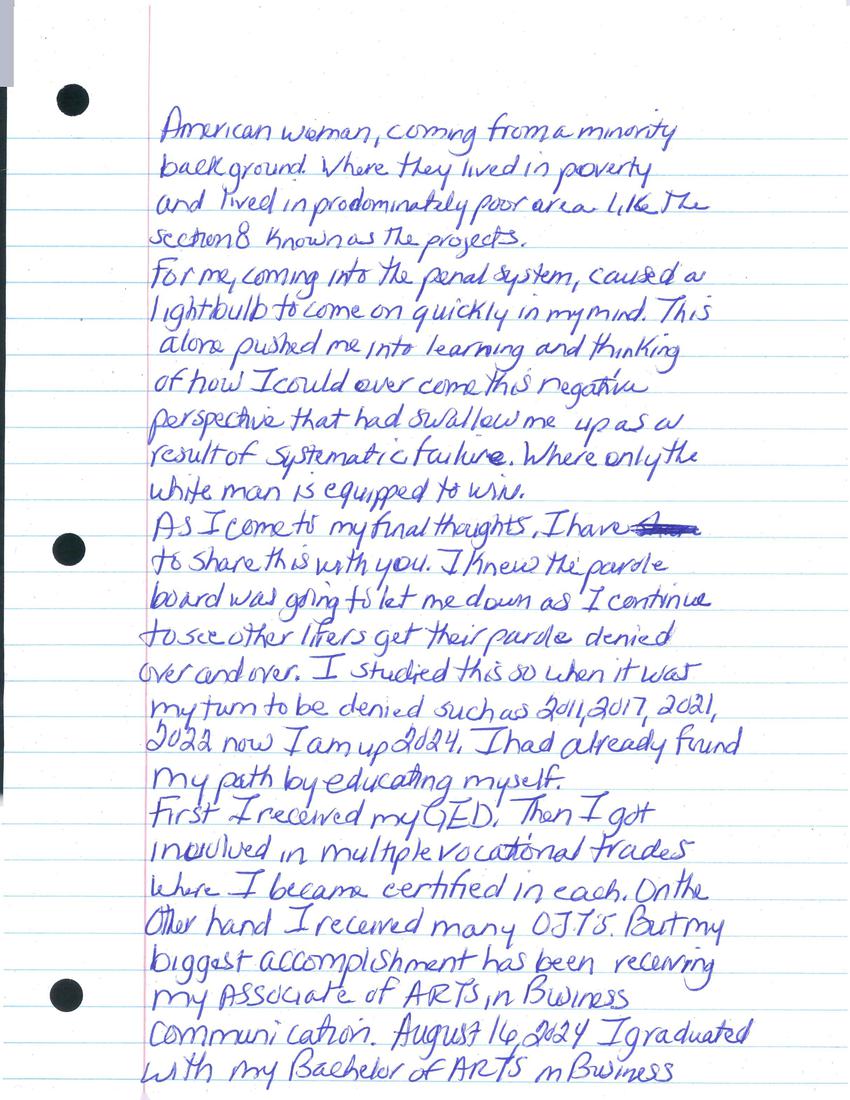 American woman, coming from a minority
background. Where they lived in poverty
and lived in prodominately poor area like the
section 8 known as the projects.
For me, coming into the penal system, caused a
lightbulb to come on quickly in my mind. This
alone pushed me into learning and thinking
of how I could over come this negative
perspective that had swallow me up as a
result of systematic failure. Where only the
white man is equipped to win.
As I come to my final thoughts, I have
to share this with you. I knew the parole
board was going to let me down as I continue
to see other lifers get their parole denied
over and over. I studied this so when it was
my turn to be denied such as 2011, 2017, 2021,
2022 now I am up 2024. I had already found
my path by educating myself.
First I received my GED. Then I got
involved in multiple vocational trades
where I became certified in each. On the
Other hand I received many O.J.T.'S. But my
biggest accomplishment has been receiving
my Associate of ARTS in Business
communication. August 16, 2024 I graduated
with my Bachelor of ARTS in Business